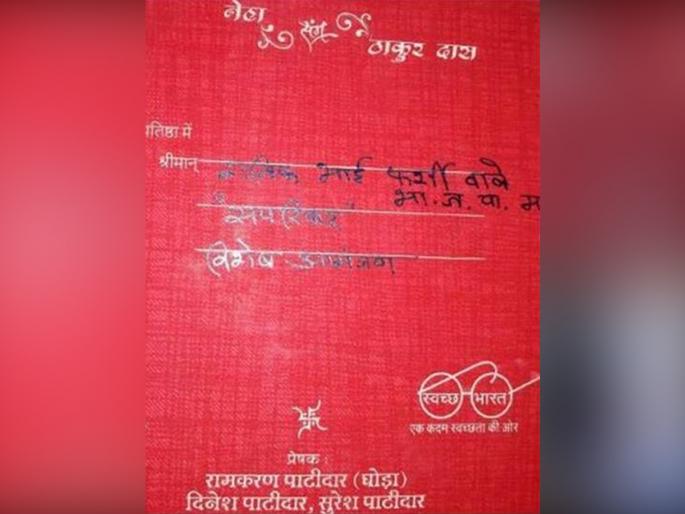 नेहा
संग
ठाकुर दास
प्रतिष्ठा में
श्रीमान्
भाई फर्शी वाले
भा.ज.पा.
"सपरिवार"
विशेष आमंत्रण
स्वच्छ भारत
एक कदम स्वच्छता की ओर
प्रेषक :
रामकरण पाटीदार (घोड़ा)
दिनेश पाटीदार, सुरेश पाटीदार